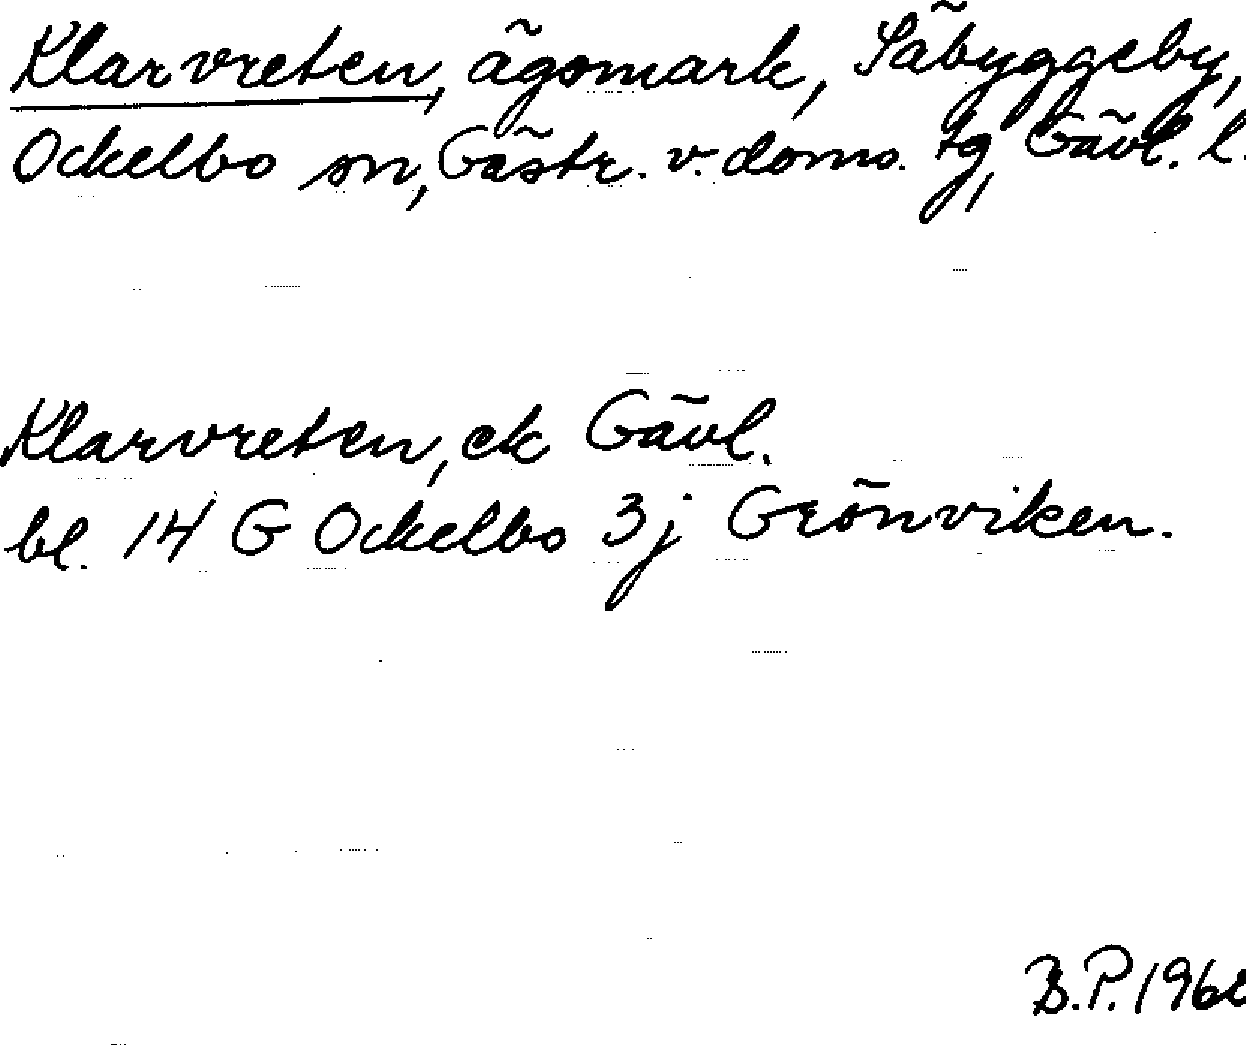 Klarvreten, ägomark, Säbyggeby,
Ockelbo sn, Gästr. v. doms. tg, Gävl. l.
Klarvreten, ek Gävl.
bl. 14 G Ockelbo 3j Grönviken.
B.P.